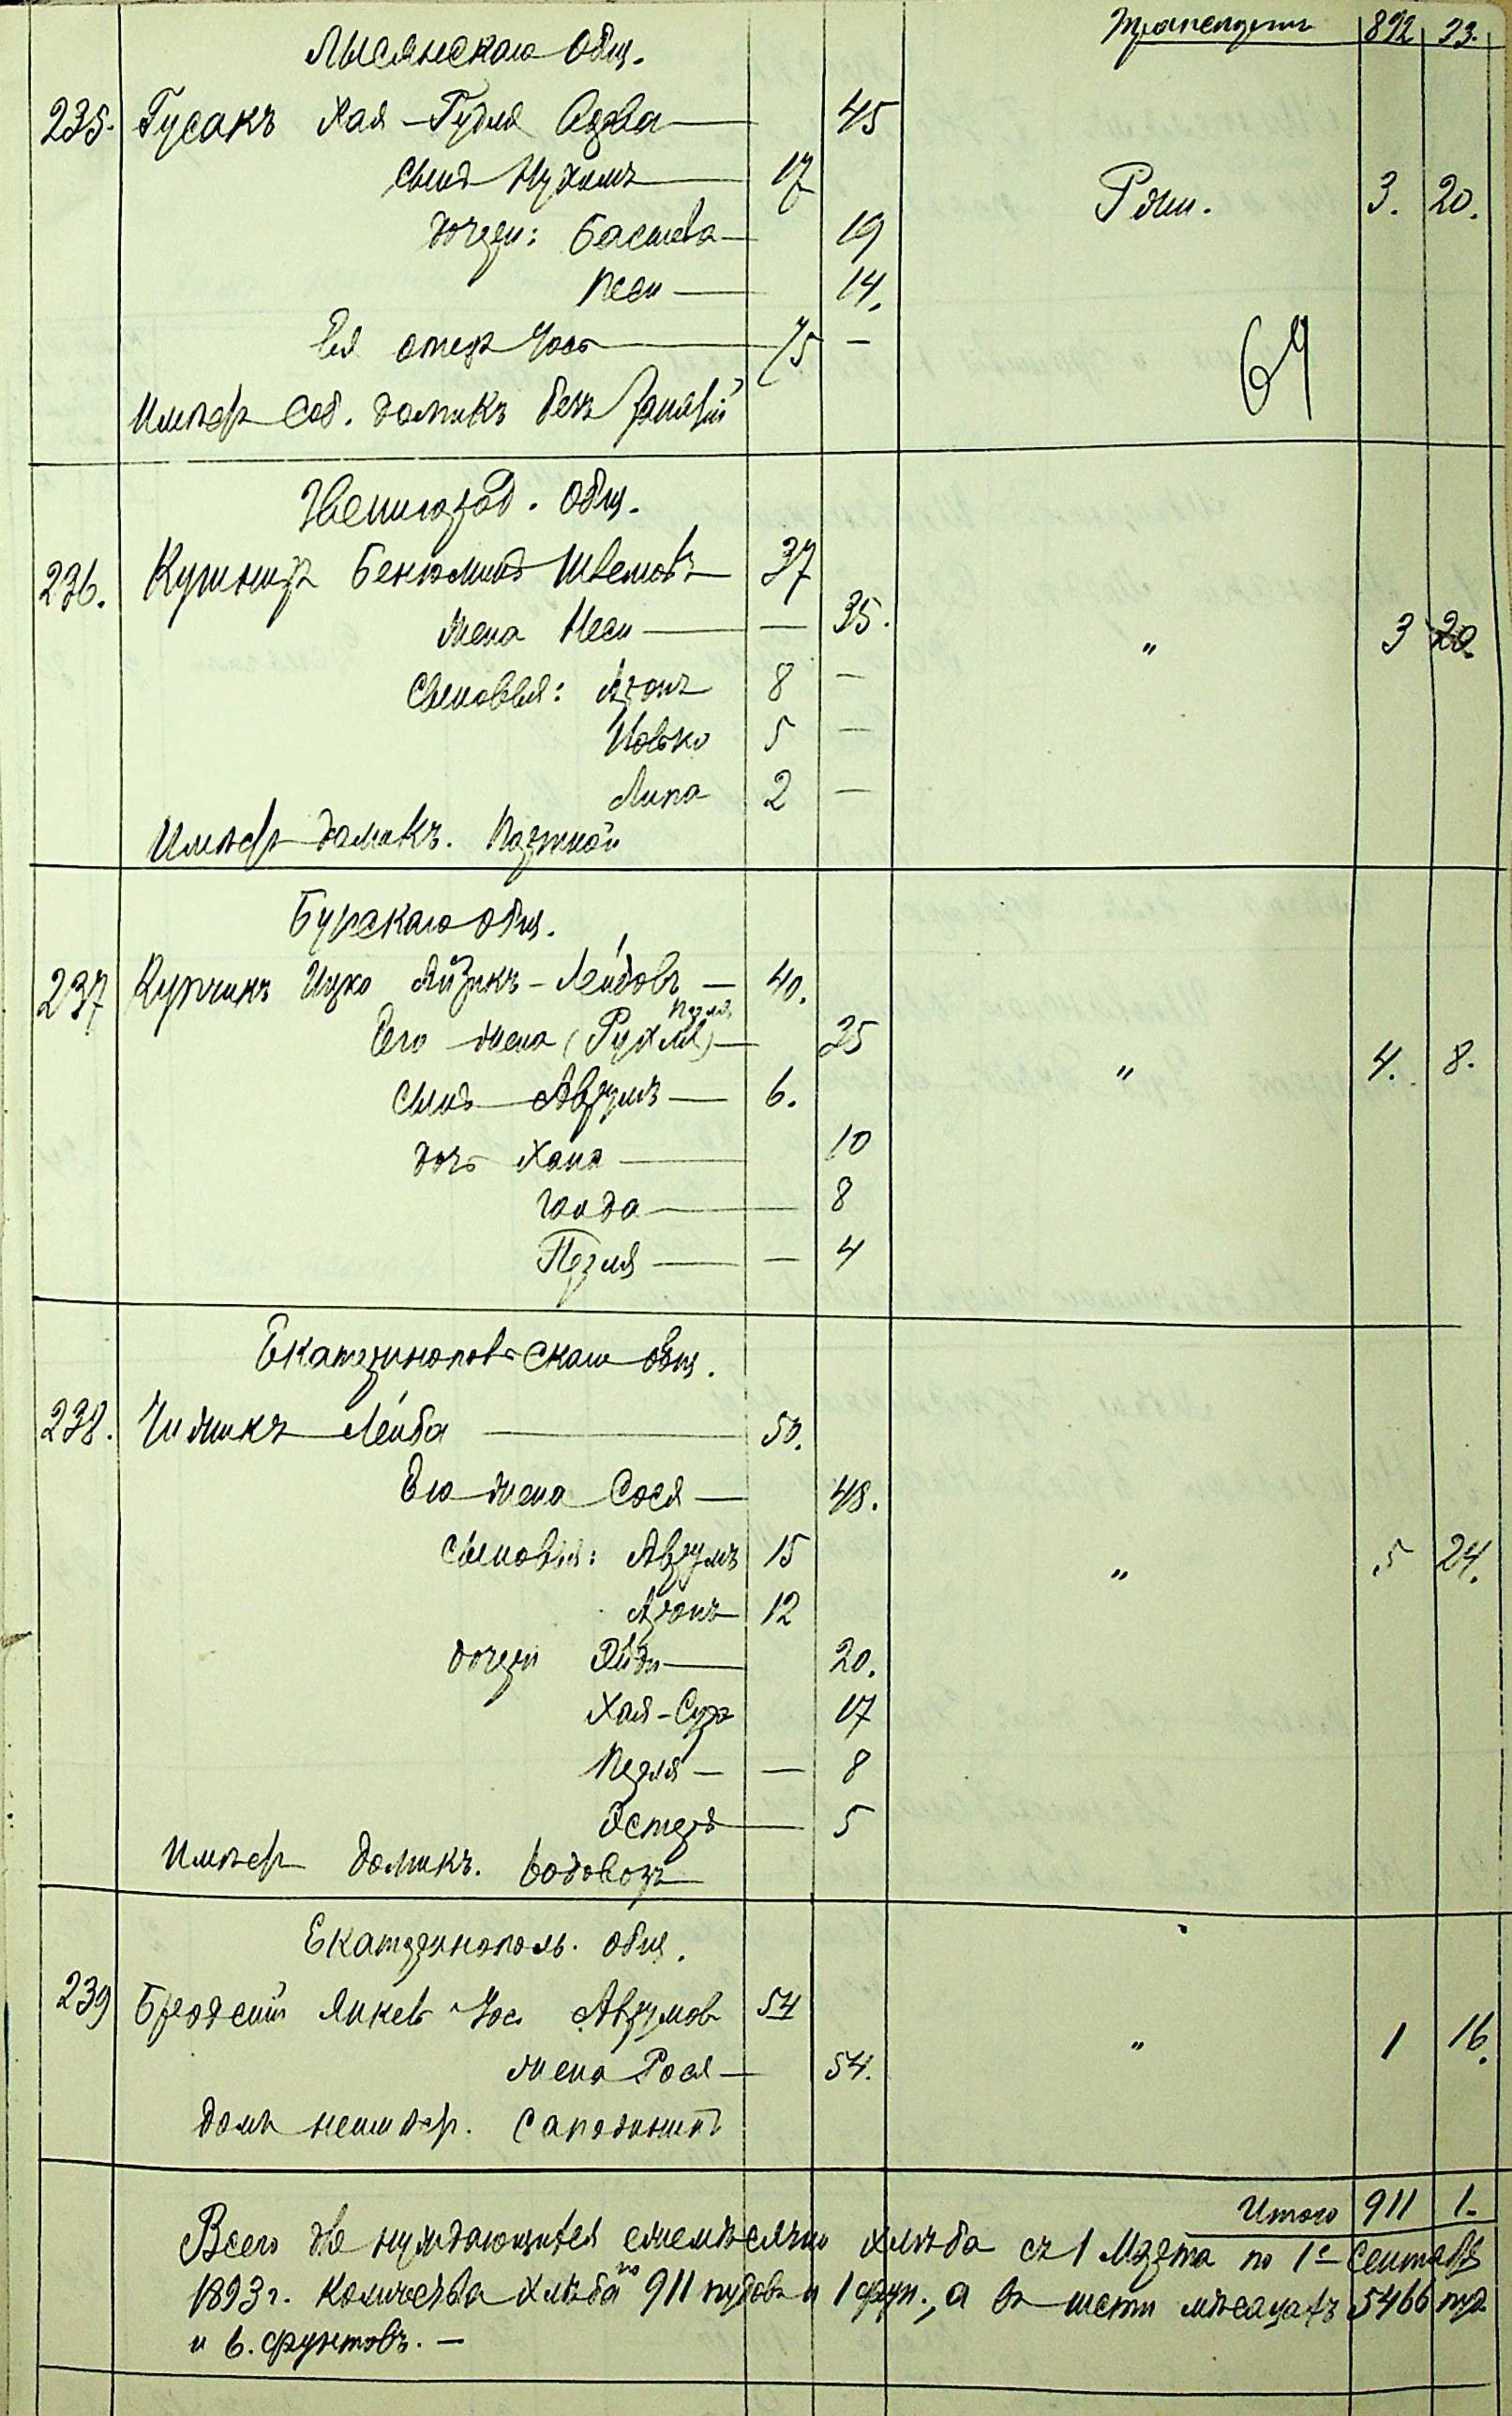 Транспортъ 892 23.
Лысянскаго Общ.
235. Гусакъ Хая-Гудля Вдова 45
сынъ Нухимъ 17
дочери: Басшева 19
Песи 14.
Рожи. 3. 20.
Ея отецъ Іось 75 —
64
Имѣетъ соб. домикъ безъ занятій
Звенигород. общ.
236. Кушниръ Беньюминъ Шлемовъ 37
жена Неси — 35.
" 3 20.
Сыновья: Аронъ 8 —
Иосько 5 —
Липа 2 —
Имѣетъ домикъ. Портной
Бурскаго общ.
237 Купчикъ Ицко Айзикъ-Лейбовъ — 40.
Перля
Его жена (Рухля) — 35
" 4. 8.
сынъ Аврумъ — 6.
дочь Хана — 10
Голда — 8
Перля — — 4
Екатеринопольскаго общ.
238. Чижикъ Лейба 50.
Его жена Сося — 48.
Сыновья: Аврумъ 15
" 5 24.
Аронъ 12
дочери Эйди — 20.
Хая-Сура 17
Перля — — 8
Эстеръ — 5
Имѣетъ домикъ. Водовозъ
Екатеринополь. общ.
239 Бродскій Янкевъ Іос. Аврумов 54
" 1 16.
жена Рося — 54.
домъ неимѣетъ. Сапожникъ
Итого 911 1.
Всего же нуждающимся ежемѣсячно хлѣба съ 1 Марта по 1е Сентября
1893 г. количества хлѣба по 911 пудовъ и 1 фун., а въ шести мѣсяцахъ 5466 пуд.
и 6. фунтовъ. —